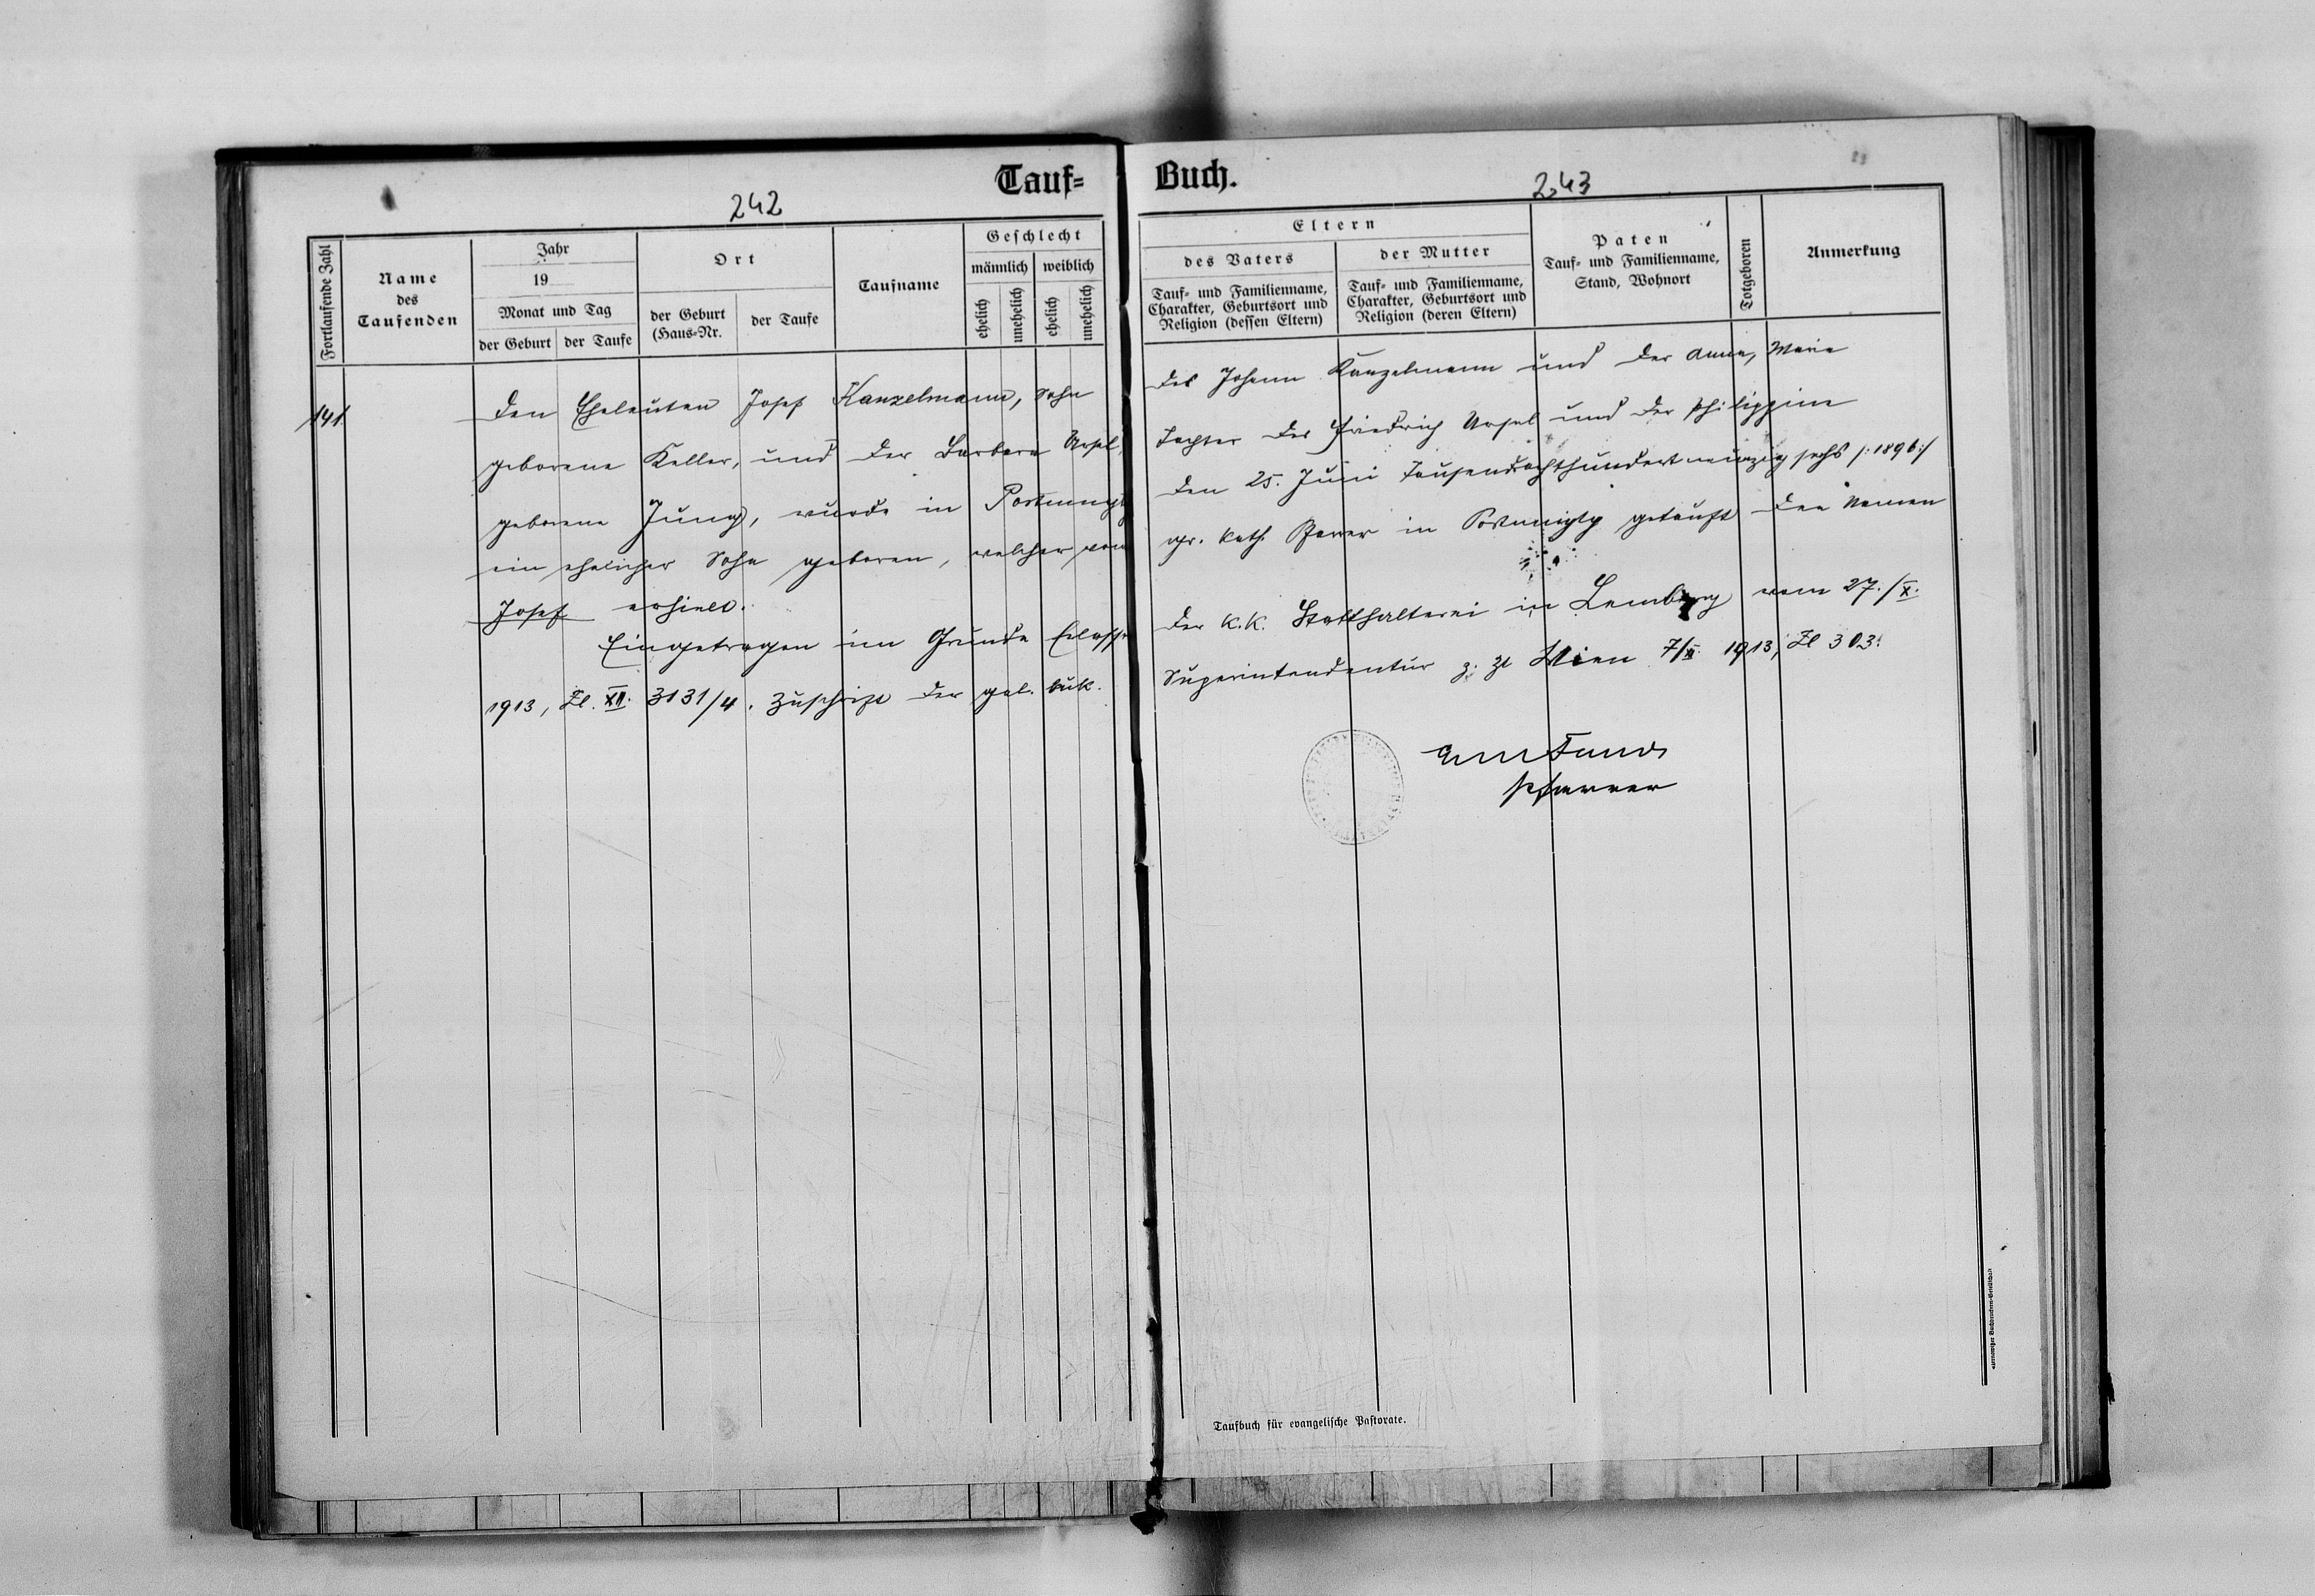 Tauf=
Buch.
242
243
Fortlaufende Zahl
Name
des
Taufenden
Jahr
19
Monat und Tag
der Geburt
der Taufe
Ort
der Geburt
(Haus=Nr.
der Taufe
Taufname
Geschlecht
männlich
weiblich
ehelich
unehelich
ehelich
unehelich
Eltern
des Vaters
Tauf= und Familienname,
Charakter, Geburtsort und
Religion (dessen Eltern)
der Mutter
Tauf= und Familienname,
Charakter, Geburtsort und
Religion (deren Eltern)
Paten
Tauf= und Familienname,
Stand, Wohnort
Totgeboren
Anmerkung
141
Den Eheleuten Josef Kanzelmann, Sohn des Johann Kanzelmann und der Anna, Maria
geborene Keller, und der Barbara Ursel, Tochter des Friedrich Ursel und der Philippine
geborene Jung, wurde in den 25. Juni Tausendachthundert neunzig sechs /:1896:/
ein ehelicher Sohn geboren, welcher vom gr. kath. Pfarrer in getauft den Namen
Josef erhielt.
Eingetragen im Grunde Erlasses der K.K. Statthalterei in Lemberg vom 27./X.
1913, Zl. XII. 3131/4. Zuschrift der gal. buk. Superintendentur z. Zt Wien 7/XI. 1913, Zl 303.
Pfarrer
Taufbuch für evangelische Pastorate.